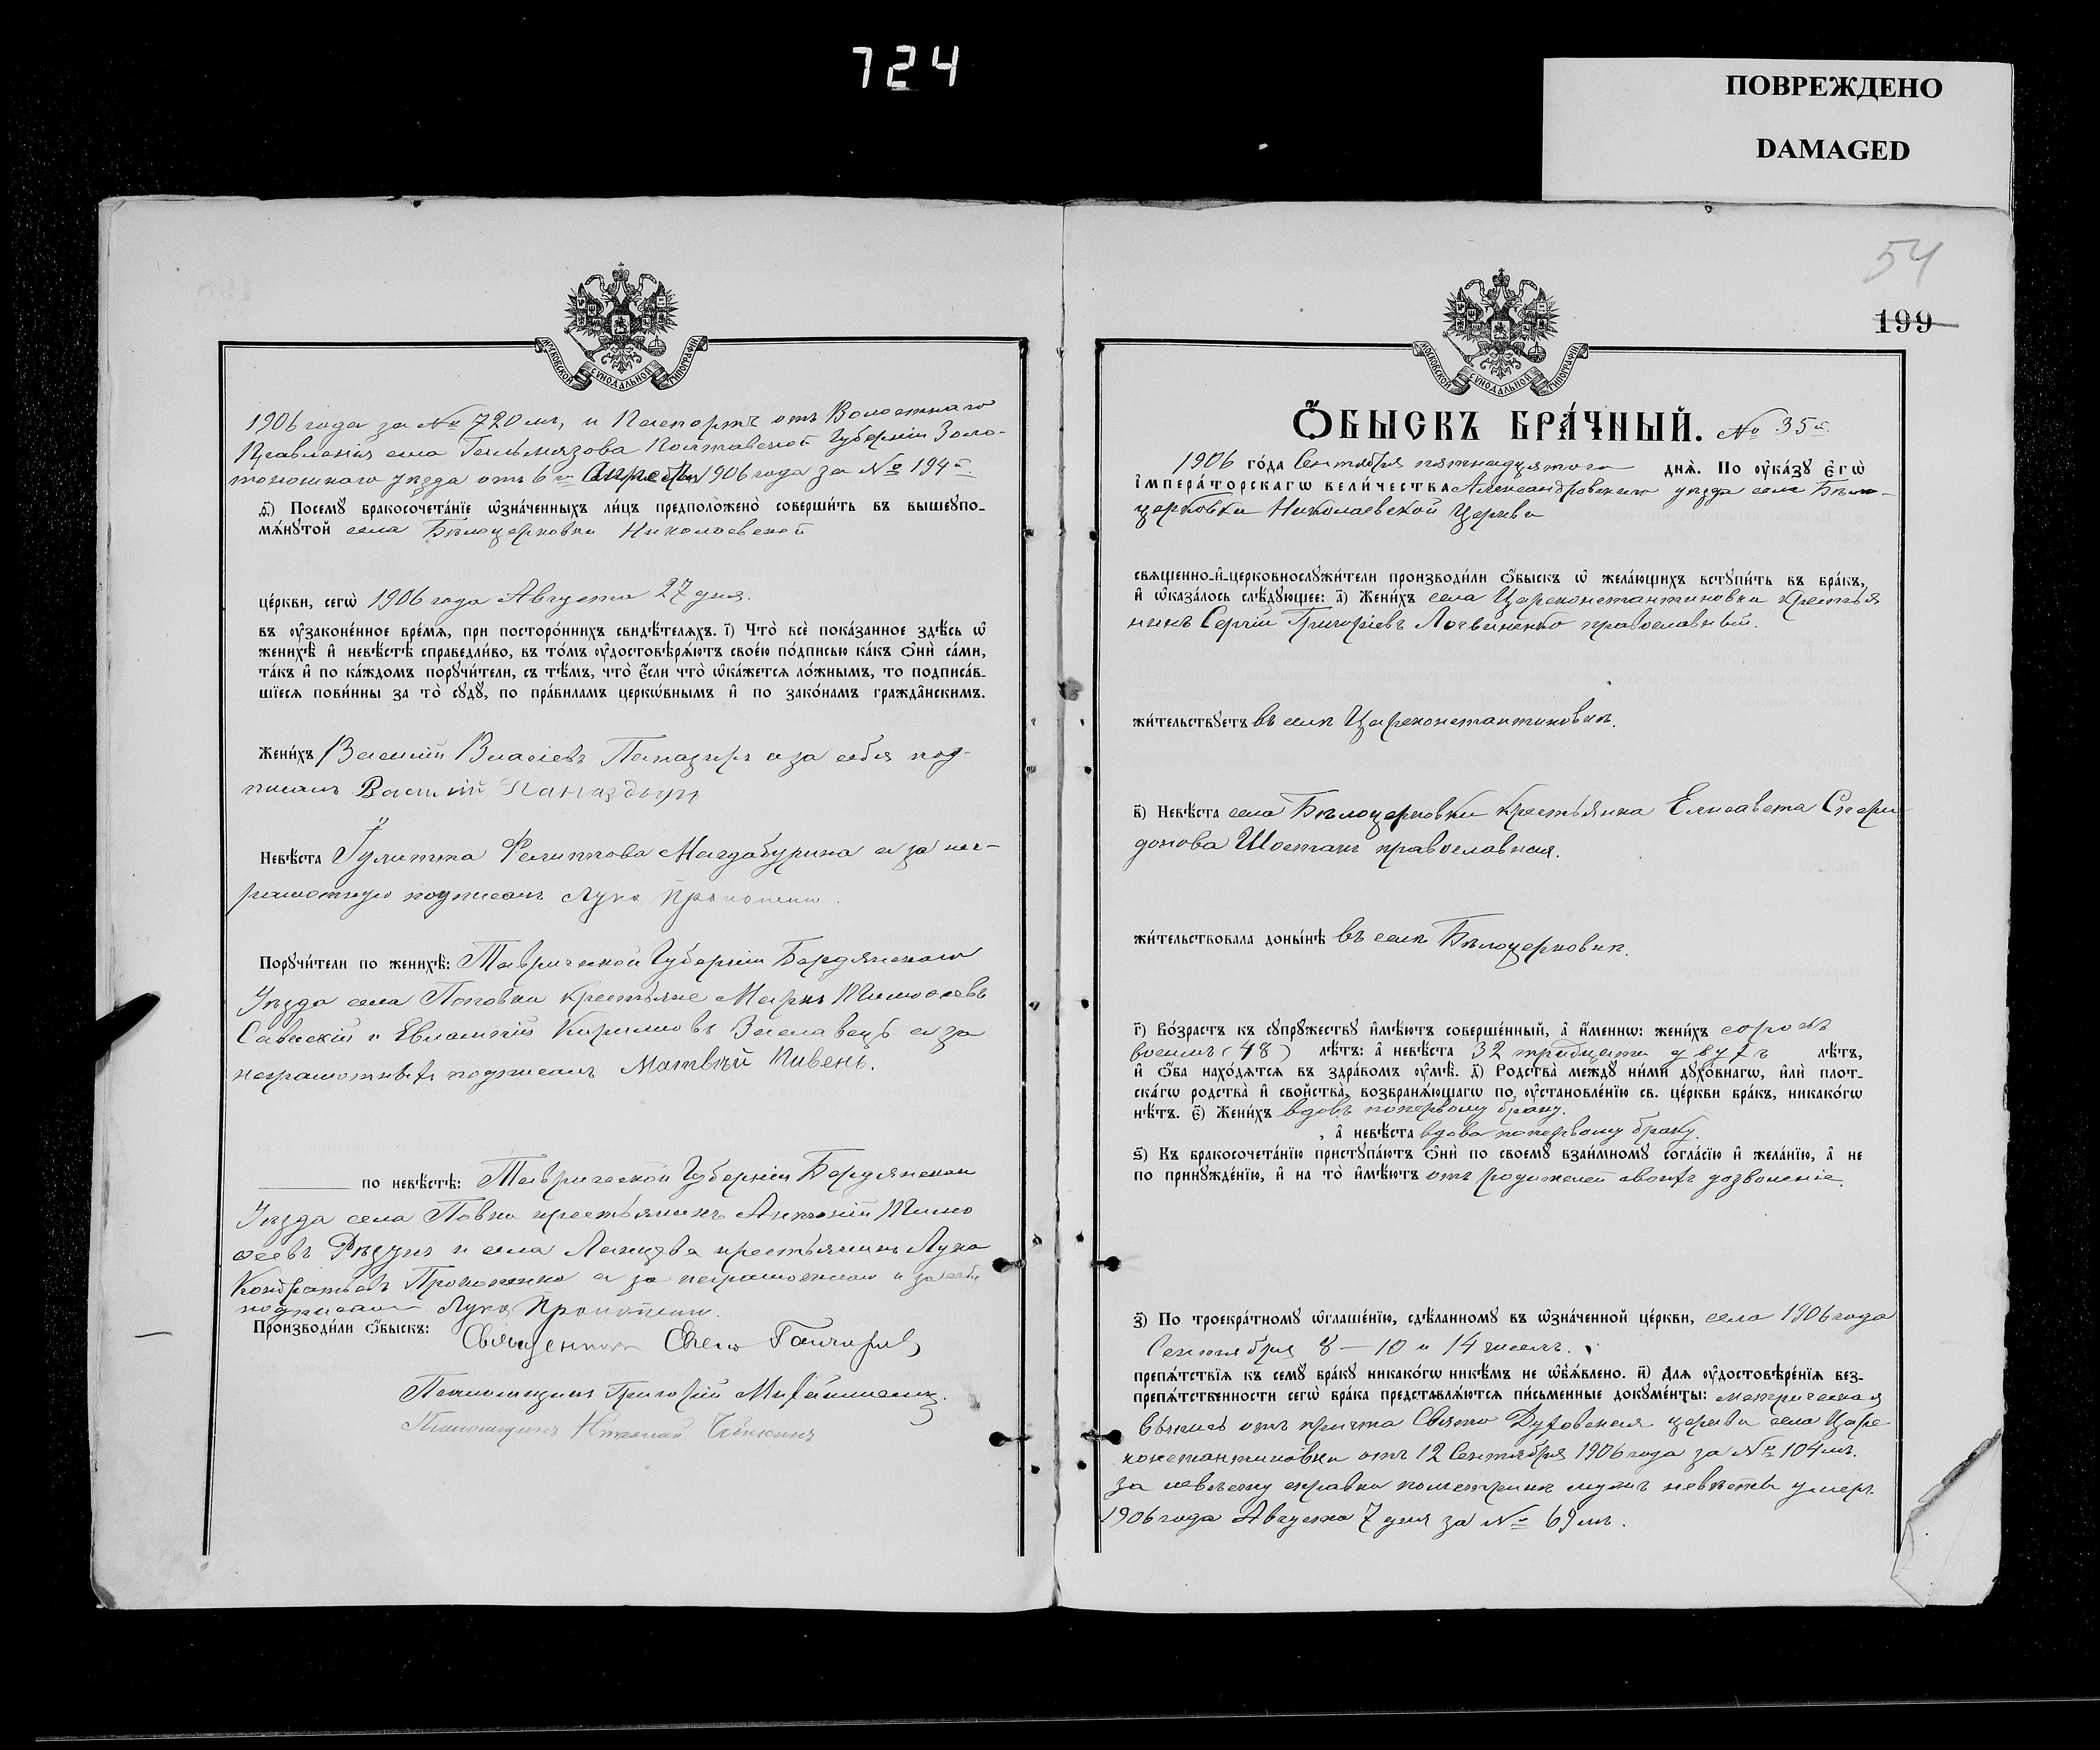 724
ПОВРЕЖДЕНО
DAMAGED
МОСКОВСКОЙ СѴНОДАЛЬНОЙ ТИПОГРАФІИ
1906 года за № 720мъ, и Паспортъ отъ Волостнаго
Правленія села Гельмязова Полтавской Губерніи Золо-
тоношскаго уѣзда отъ 6го Апреля 1906 года за № 194й.
Ѳ) Посемꙋ бракосочета́нїе ѡ҆зна́ченныхъ ли́цъ предположено̀ соверши́ть въ вышеꙋпо-
мѧ́нꙋтой села Бѣлоцерковки Николаевской
це́ркви, сегѡ̀ 1906 года Августа 27 дня.
въ оу҆законе́нное вре́мѧ, при посторо́ннихъ свидѣ́телѧхъ. І) Что̀ всѐ пока́занное здѣ́сь ѡ҆
женихѣ̀ и҆ невѣ́стѣ справедли́во, въ то́мъ оу҆достовѣрѧ́ютъ свое́ю по́дписью ка́къ ѻ҆нѝ са́ми,
та́къ и҆ по ка́ждомъ порꙋчи́тели, съ тѣ́мъ, что̀ є҆́сли что̀ ѡ҆ка́жетсѧ ло́жнымъ, то подписа́в-
шїесѧ пови́нны за то̀ сꙋдꙋ̀, по пра́виламъ церкѡ́внымъ и҆ по зако́намъ гражда́нскимъ.
Жени́хъ Василій Власіевъ Панадыръ а за себя под-
писалъ Василій Паназдыръ
Невѣ́ста Іулитта Филиппова Магдабурина а за не-
грамотную подписалъ Лука Прокопенко.
Порꙋчи́тели по женихѣ̀: Таврической Губерніи Бердянскаго
Уѣзда села Поповки крестьяне Маркъ Тимофеевъ
Савскій и Евлампій Кириловъ Заславецъ а за
неграмотныхъ подписалъ Матвѣй Пивень.
по невѣ́стѣ: Таврической Губерніи Бердянскаго
Уѣзда села Повки крестьянинъ Антоній Тимо
феевъ Рѣзунъ и села крестьянинъ Лука
Кондратьевъ Прокопенко а за неграмотнаго и за себя
подписалъ Лука Прокопенко.
Производи́ли ѻ҆́быскъ: Священникъ
Псаломщикъ Григорій
Псаломщикъ
54
199
МОСКОВСКОЙ СѴНОДАЛЬНОЙ ТИПОГРАФІИ
Ѻ҆́БЫСКЪ БРА́ЧНЫЙ. № 35й.
1906 го́да Сентября пятнадцятого днѧ̀. По оу҆ка́зꙋ є҆гѡ̀
і҆мпера́торскагѡ вели́чества Александровскаго уѣзда села Бѣло-
церковки Николаевской Церкви
свѧщенно-и҆-церковнослꙋжи́тели производи́ли ѻ҆́быскъ ѡ҆ жела́ющихъ встꙋпи́ть въ бра́къ,
и҆ ѡ҆каза́лось слѣ́дꙋющее: а҃) Жени́хъ села Цареконстантиновки крестья
нинъ Сергій Григоріевъ Логвиненко православный.
жи́тельствꙋетъ въ селѣ Цареконстантиновкѣ.
в҃) Невѣ́ста села Бѣлоцерковки крестьянка Елисавета Спири
донова Шостакъ православная.
жи́тельствовала доны́нѣ въ селѣ Бѣлоцерковкѣ.
г҃) Во́зрастъ къ сꙋпрꙋ́жествꙋ и҆мѣ́ютъ соверше́нный, а҆ и҆́меннѡ: жени́хъ сорокъ
восемъ (48) лѣ́тъ: а҆ невѣ́ста 32 тридцяти двухъ лѣ́тъ,
и҆ ѻ҆́ба нахо́дѧтсѧ въ здра́вомъ оу҆мѣ̀. д҃) Родства̀ междꙋ̀ ни́ми дꙋхо́внагѡ, и҆лѝ плот-
ска́гѡ родства̀ и҆ сво́йства̀, возбранѧ́ющагѡ по оу҆становле́нїю св. це́ркви бра́къ, никако́гѡ
нѣ́тъ. є҃) Жени́хъ вдовъ поперьвому браку.
, а҆ невѣ́ста вдова поперьвому браку.
ѕ҃) Къ бракосочета́нїю пристꙋпа́ютъ ѻ҆нѝ по своемꙋ̀ взаи́мномꙋ согла́сїю и҆ жела́нїю, а҆ не
по принꙋжде́нїю, и҆ на то̀ и҆мѣ́ютъ отъ родителей своихъ дозволеніе.
з҃) По троекра́тномꙋ ѡ҆глаше́нїю, сдѣ́ланномꙋ въ ѡ҆зна́ченной це́ркви, села 1906 года
Сентября 8 – 10 и 14 числъ.
препѧ́тствїѧ къ семꙋ̀ бра́кꙋ никако́гѡ никѣ́мъ не ѡ҆б̾ѧ́влено. и҃) Длѧ оу҆достовѣре́нїѧ без-
препѧ́тственности сегѡ̀ бра́ка представлѧ́ютсѧ пи́сьменные докꙋме́нты: метрическая
выпись отъ причта Свято Духовская церкви села Царе
константиновки отъ 12 Сентября 1906 года за № 104мъ.
за невѣсту справка пометрикѣ мужъ невѣсты умеръ
1906 года Августа 7 дня за № 69мъ.